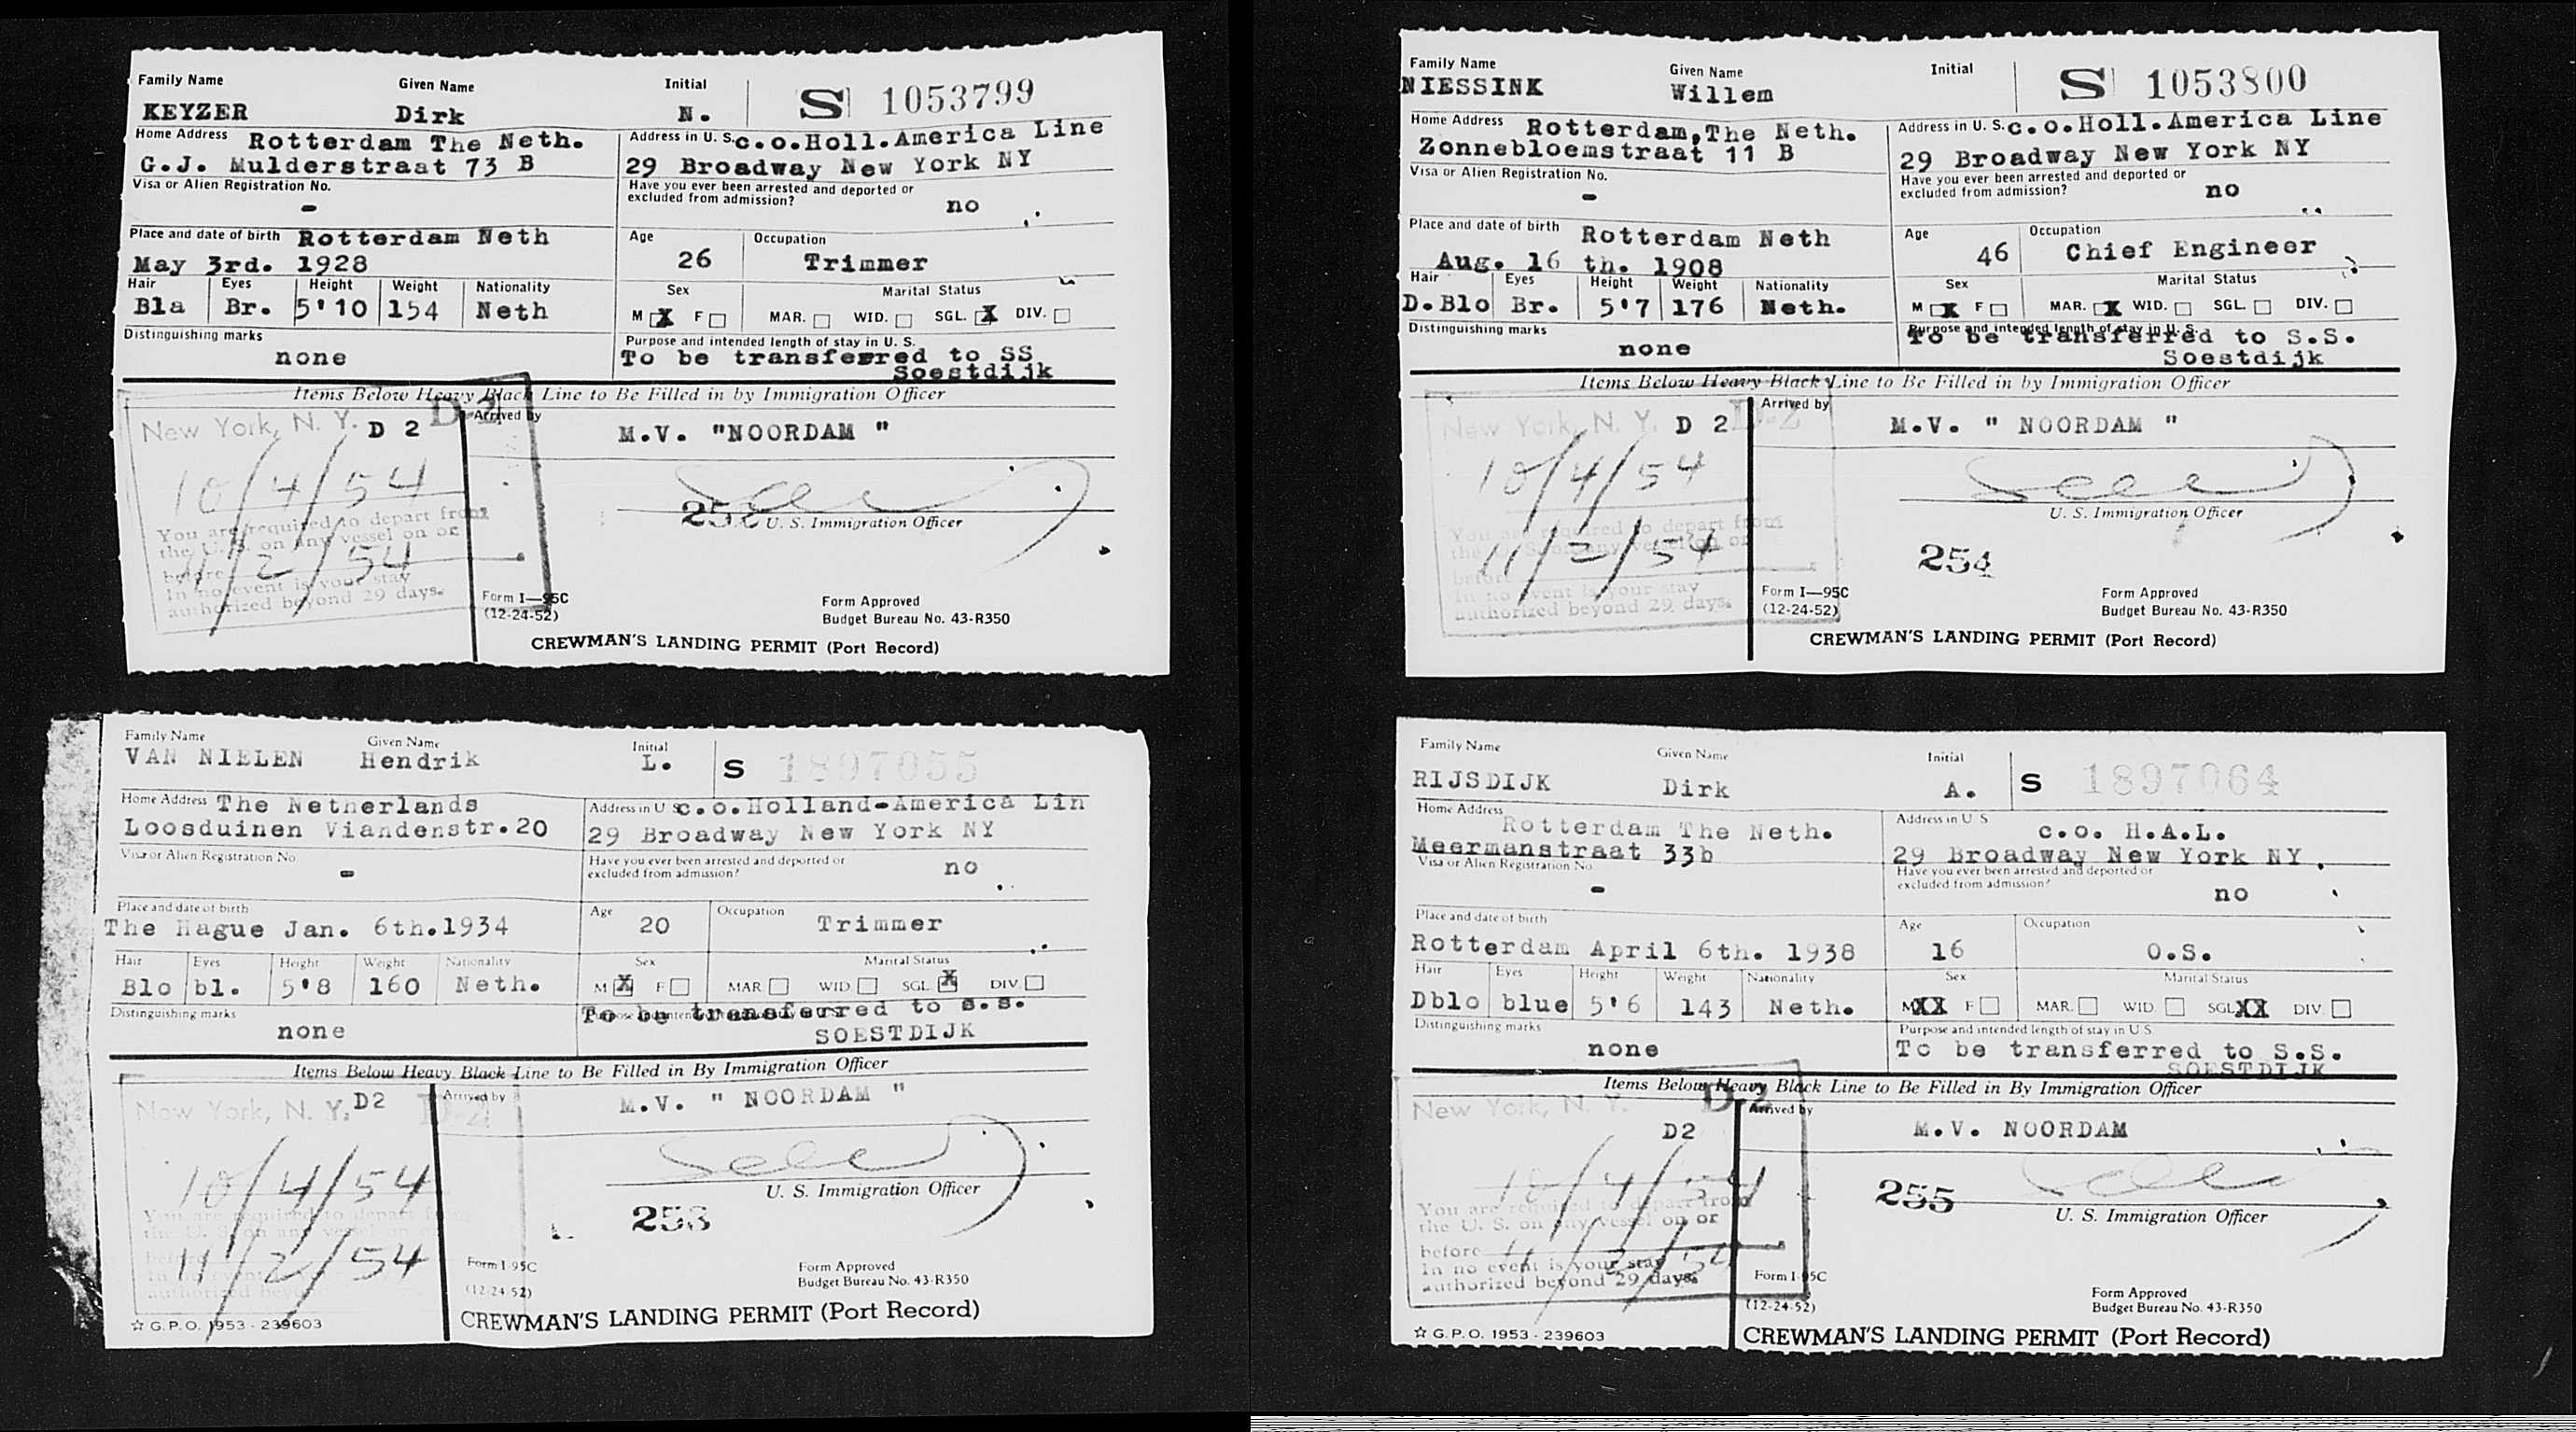 Family Name Given Name Initial
KEYZER Dirk N. S 1053799
Home Address Rotterdam The Neth.
G.J. Mulderstraat 73 B
Address in U. S. c.o.Holl.America Line
29 Broadway New York NY
Visa or Alien Registration No.
-
Have you ever been arrested and deported or
excluded from admission? no
Place and date of birth Rotterdam Neth
May 3rd. 1928
Age Occupation
26 Trimmer
Hair Eyes Height Weight Nationality
Bla Br. 5'10 154 Neth
Sex Marital Status
M X F MAR. WID. SGL. X DIV.
Distinguishing marks
none
Purpose and intended length of stay in U. S.
To be transferred to SS
Soestdijk
Items Below Heavy Black Line to Be Filled in by Immigration Officer
New York, N. Y. D 2 D-2
Arrived by
M.V. "NOORDAM "
10/4/54
You are required to depart from
the U. S. on any vessel on or
before 11/2/54
In no event is your stay
authorized beyond 29 days.
252 U. S. Immigration Officer
Form I—95C
(12-24-52)
Form Approved
Budget Bureau No. 43-R350
CREWMAN'S LANDING PERMIT (Port Record)
Family Name Given Name Initial
NIESSINK Willem S 1053800
Home Address Rotterdam,The Neth.
Zonnebloemstraat 11 B
Address in U. S. c.o.Holl.America Line
29 Broadway New York NY
Visa or Alien Registration No.
-
Have you ever been arrested and deported or
excluded from admission? no
Place and date of birth Rotterdam Neth
Aug. 16 th. 1908
Age Occupation
46 Chief Engineer
Hair Eyes Height Weight Nationality
D.Blo Br. 5'7 176 Neth.
Sex Marital Status
M X F MAR. X WID. SGL. DIV.
Distinguishing marks
none
Purpose and intended length of stay in U. S.
To be transferred to S.S.
Soestdijk
Items Below Heavy Black Line to Be Filled in by Immigration Officer
New York, N. Y. D 2 D-2
Arrived by
M.V. " NOORDAM "
10/4/54
You are required to depart from
the U. S. on any vessel on or
before 11/2/54
In no event is your stay
authorized beyond 29 days.
U. S. Immigration Officer
254
Form I—95C
(12-24-52)
Form Approved
Budget Bureau No. 43-R350
CREWMAN'S LANDING PERMIT (Port Record)
Family Name Given Name Initial
VAN NIELEN Hendrik L. S 1897055
Home Address The Netherlands
Loosduinen Viandenstr.20
Address in U S c.o.Holland-America Lin
29 Broadway New York NY
Visa or Alien Registration No
-
Have you ever been arrested and deported or
excluded from admission? no
Place and date of birth
The Hague Jan. 6th.1934
Age Occupation
20 Trimmer
Hair Eyes Height Weight Nationality
Blo bl. 5'8 160 Neth.
Sex Marital Status
M X F MAR WID. SGL X DIV.
Distinguishing marks
none
To be transferred to s.s.
SOESTDIJK
Items Below Heavy Black Line to Be Filled in By Immigration Officer
New York, N. Y. D2
Arrived by
M.V. " NOORDAM "
10/4/54
You are required to depart from
the U. S. on any vessel on or
before 11/2/54
authorized beyond
U. S. Immigration Officer
253
Form I-95C
(12-24-52)
Form Approved
Budget Bureau No. 43-R350
☆ G.P.O. 1953 - 239603
CREWMAN'S LANDING PERMIT (Port Record)
Family Name Given Name Initial
RIJSDIJK Dirk A. S 1897064
Home Address
Rotterdam The Neth.
Meermanstraat 33b
Address in U S
c.o. H.A.L.
29 Broadway New York NY.
Visa or Alien Registration No
-
Have you ever been arrested and deported or
excluded from admission? no
Place and date of birth
Rotterdam April 6th. 1938
Age Occupation
16 O.S.
Hair Eyes Height Weight Nationality
Dblo blue 5'6 143 Neth.
Sex Marital Status
M XX F MAR. WID SGL XX DIV
Distinguishing marks
none
Purpose and intended length of stay in U S
To be transferred to S.S.
SOESTDIJK
Items Below Heavy Black Line to Be Filled in By Immigration Officer
New York, N. Y. D-2
D2
Arrived by
M.V. NOORDAM
10/4/54
You are required to depart from
the U. S. on any vessel on or
before 11/2/54
In no event is your stay
authorized beyond 29 days.
255
U. S. Immigration Officer
Form I-95C
(12-24-52)
Form Approved
Budget Bureau No. 43-R350
☆ G.P.O. 1953 - 239603
CREWMAN'S LANDING PERMIT (Port Record)